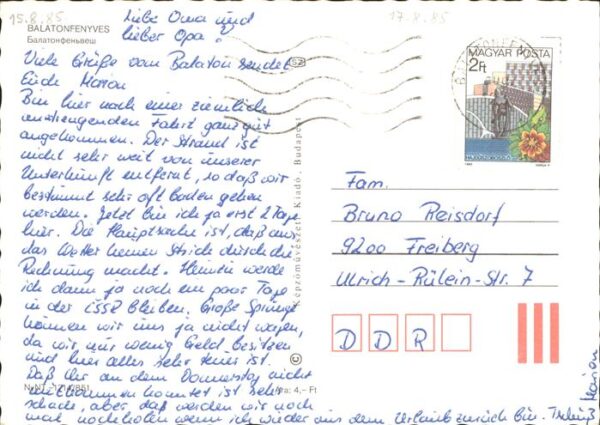 15.8.85
17.8.85
BALATONFENYVES
Балатонфеньвеш
Liebe Oma und
lieber Opa!
Viele Grüße vom Balaton sendet
Euch Marion
Bin hier nach einer ziemlich
anstrengenden Fahrt ganz gut
angekommen. Der Strand ist
nicht sehr weit von unserer
Unterkunft entfernt, so daß wir
bestimmt sehr oft baden gehen
werden. Jetzt bin ich ja erst 2 Tage
hier. Die Hauptsache ist, daß uns
das Wetter keinen Strich durch die
Rechnung macht. Heimzu werde
ich dann ja noch ein paar Tage
in der ČSSR bleiben. Große Sprünge
können wir uns ja nicht wagen,
da wir nur wenig Geld besitzen
und hier alles sehr teuer ist.
Daß Ihr an dem Donnerstag nicht
mitkommen konntet ist sehr
schade, aber daß werden wir noch
mal nachholen wenn ich wieder aus dem Urlaub zurück bin. Tschüß
Marion
Képzőművészeti Kiadó, Budapest
Ára: 4,- Ft
MAGYAR POSTA
2Ft
Fam.
Bruno Reisdorf
9200 Freiberg
Ulrich-Rülein-Str. 7
D D R